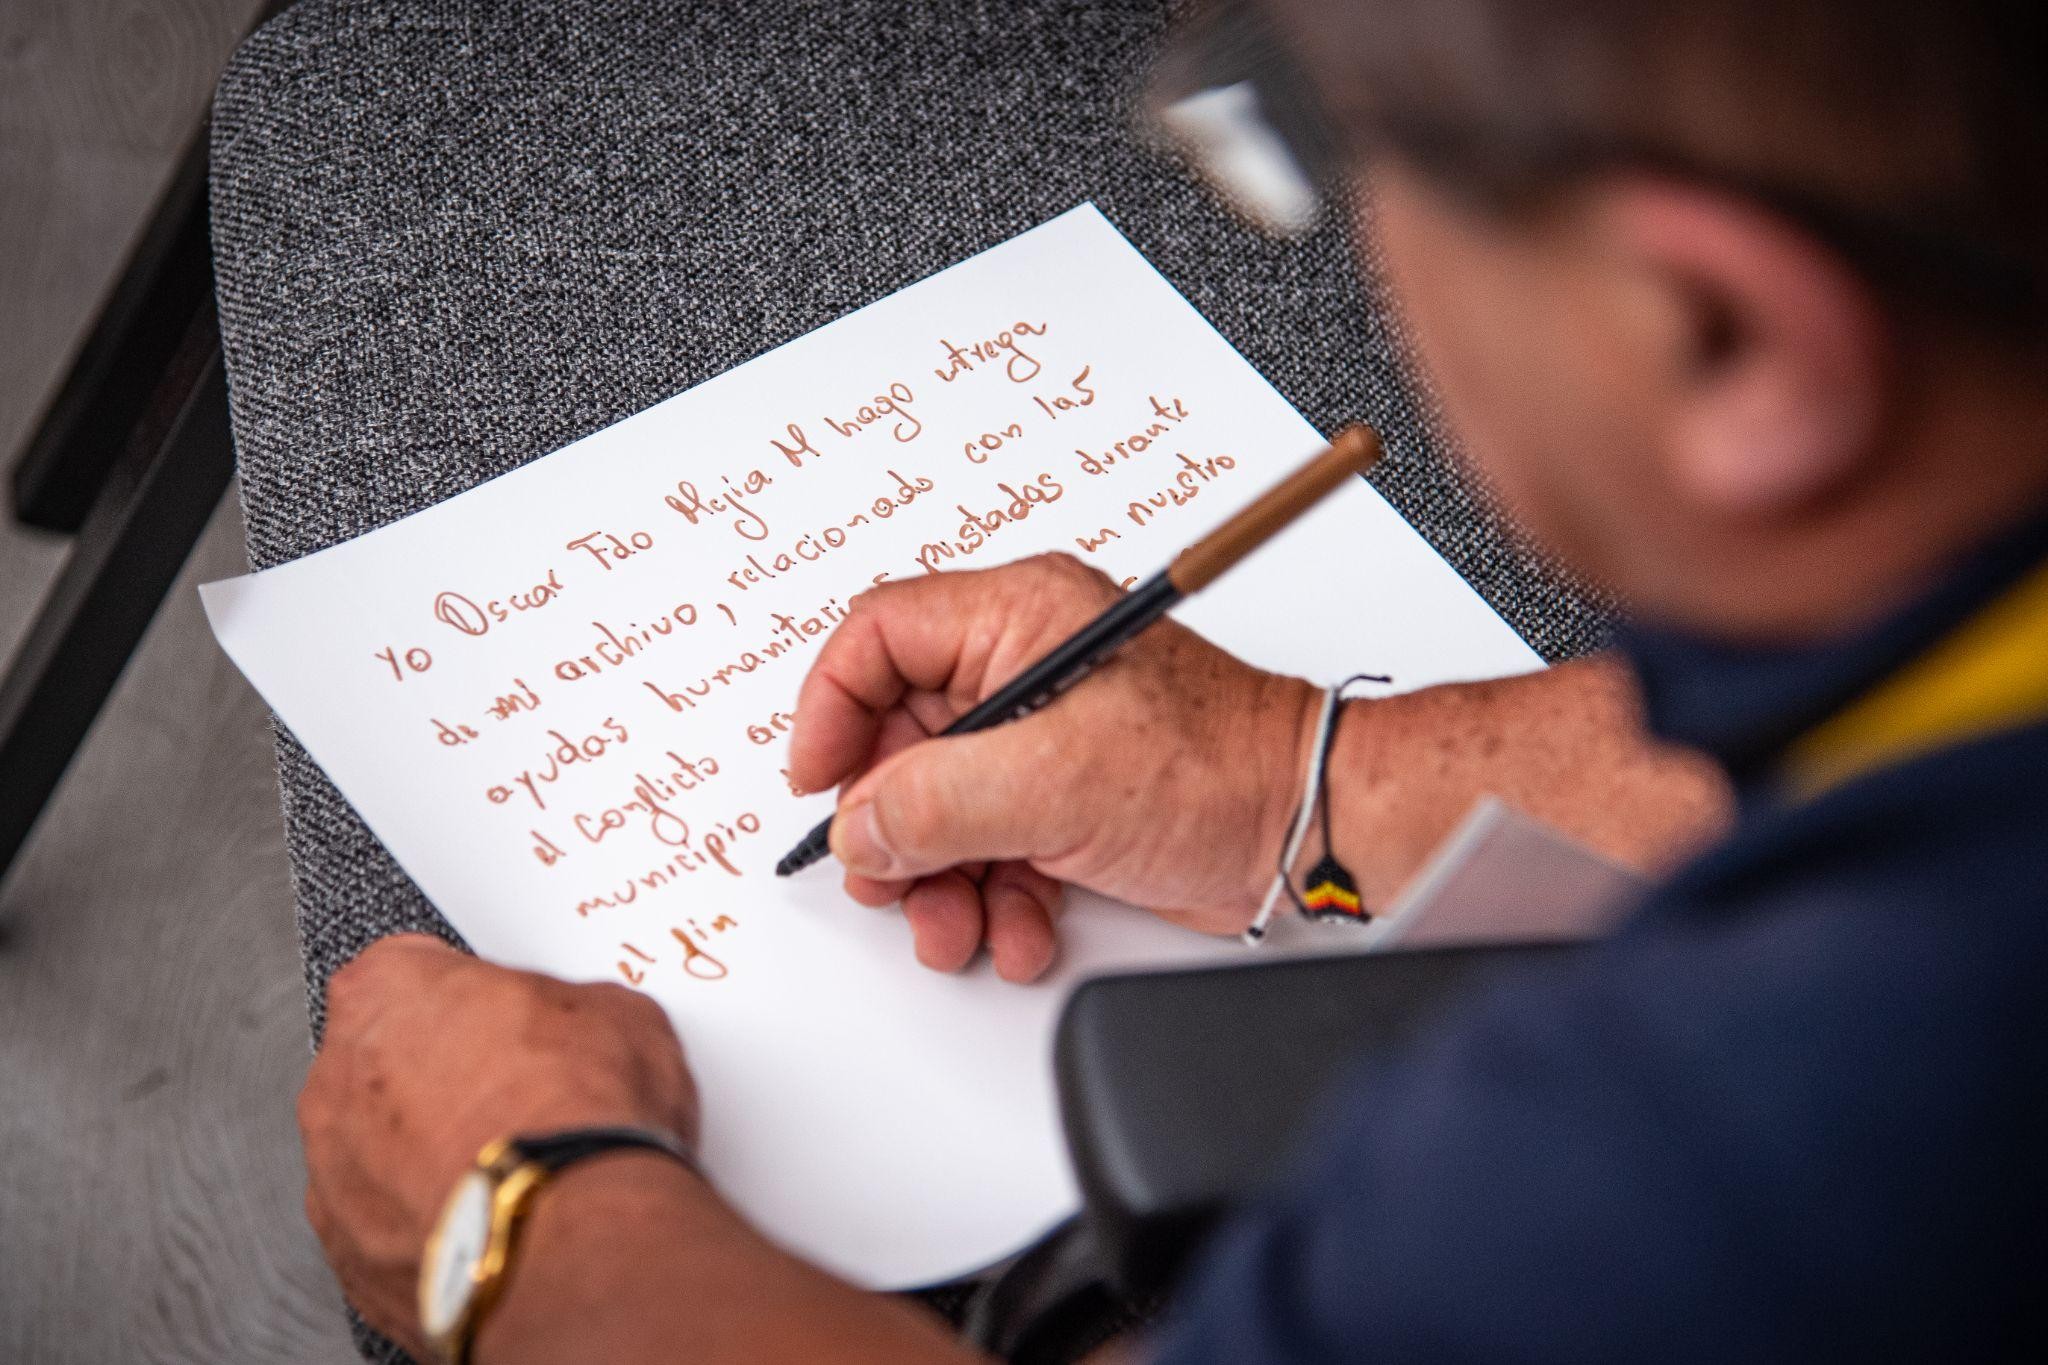 Yo Oscar Fdo Mejia M hago entrega
de mi archivo, relacionado con las
ayudas humanitarias prestadas durante
el conflicto en nuestro
municipio
el fin